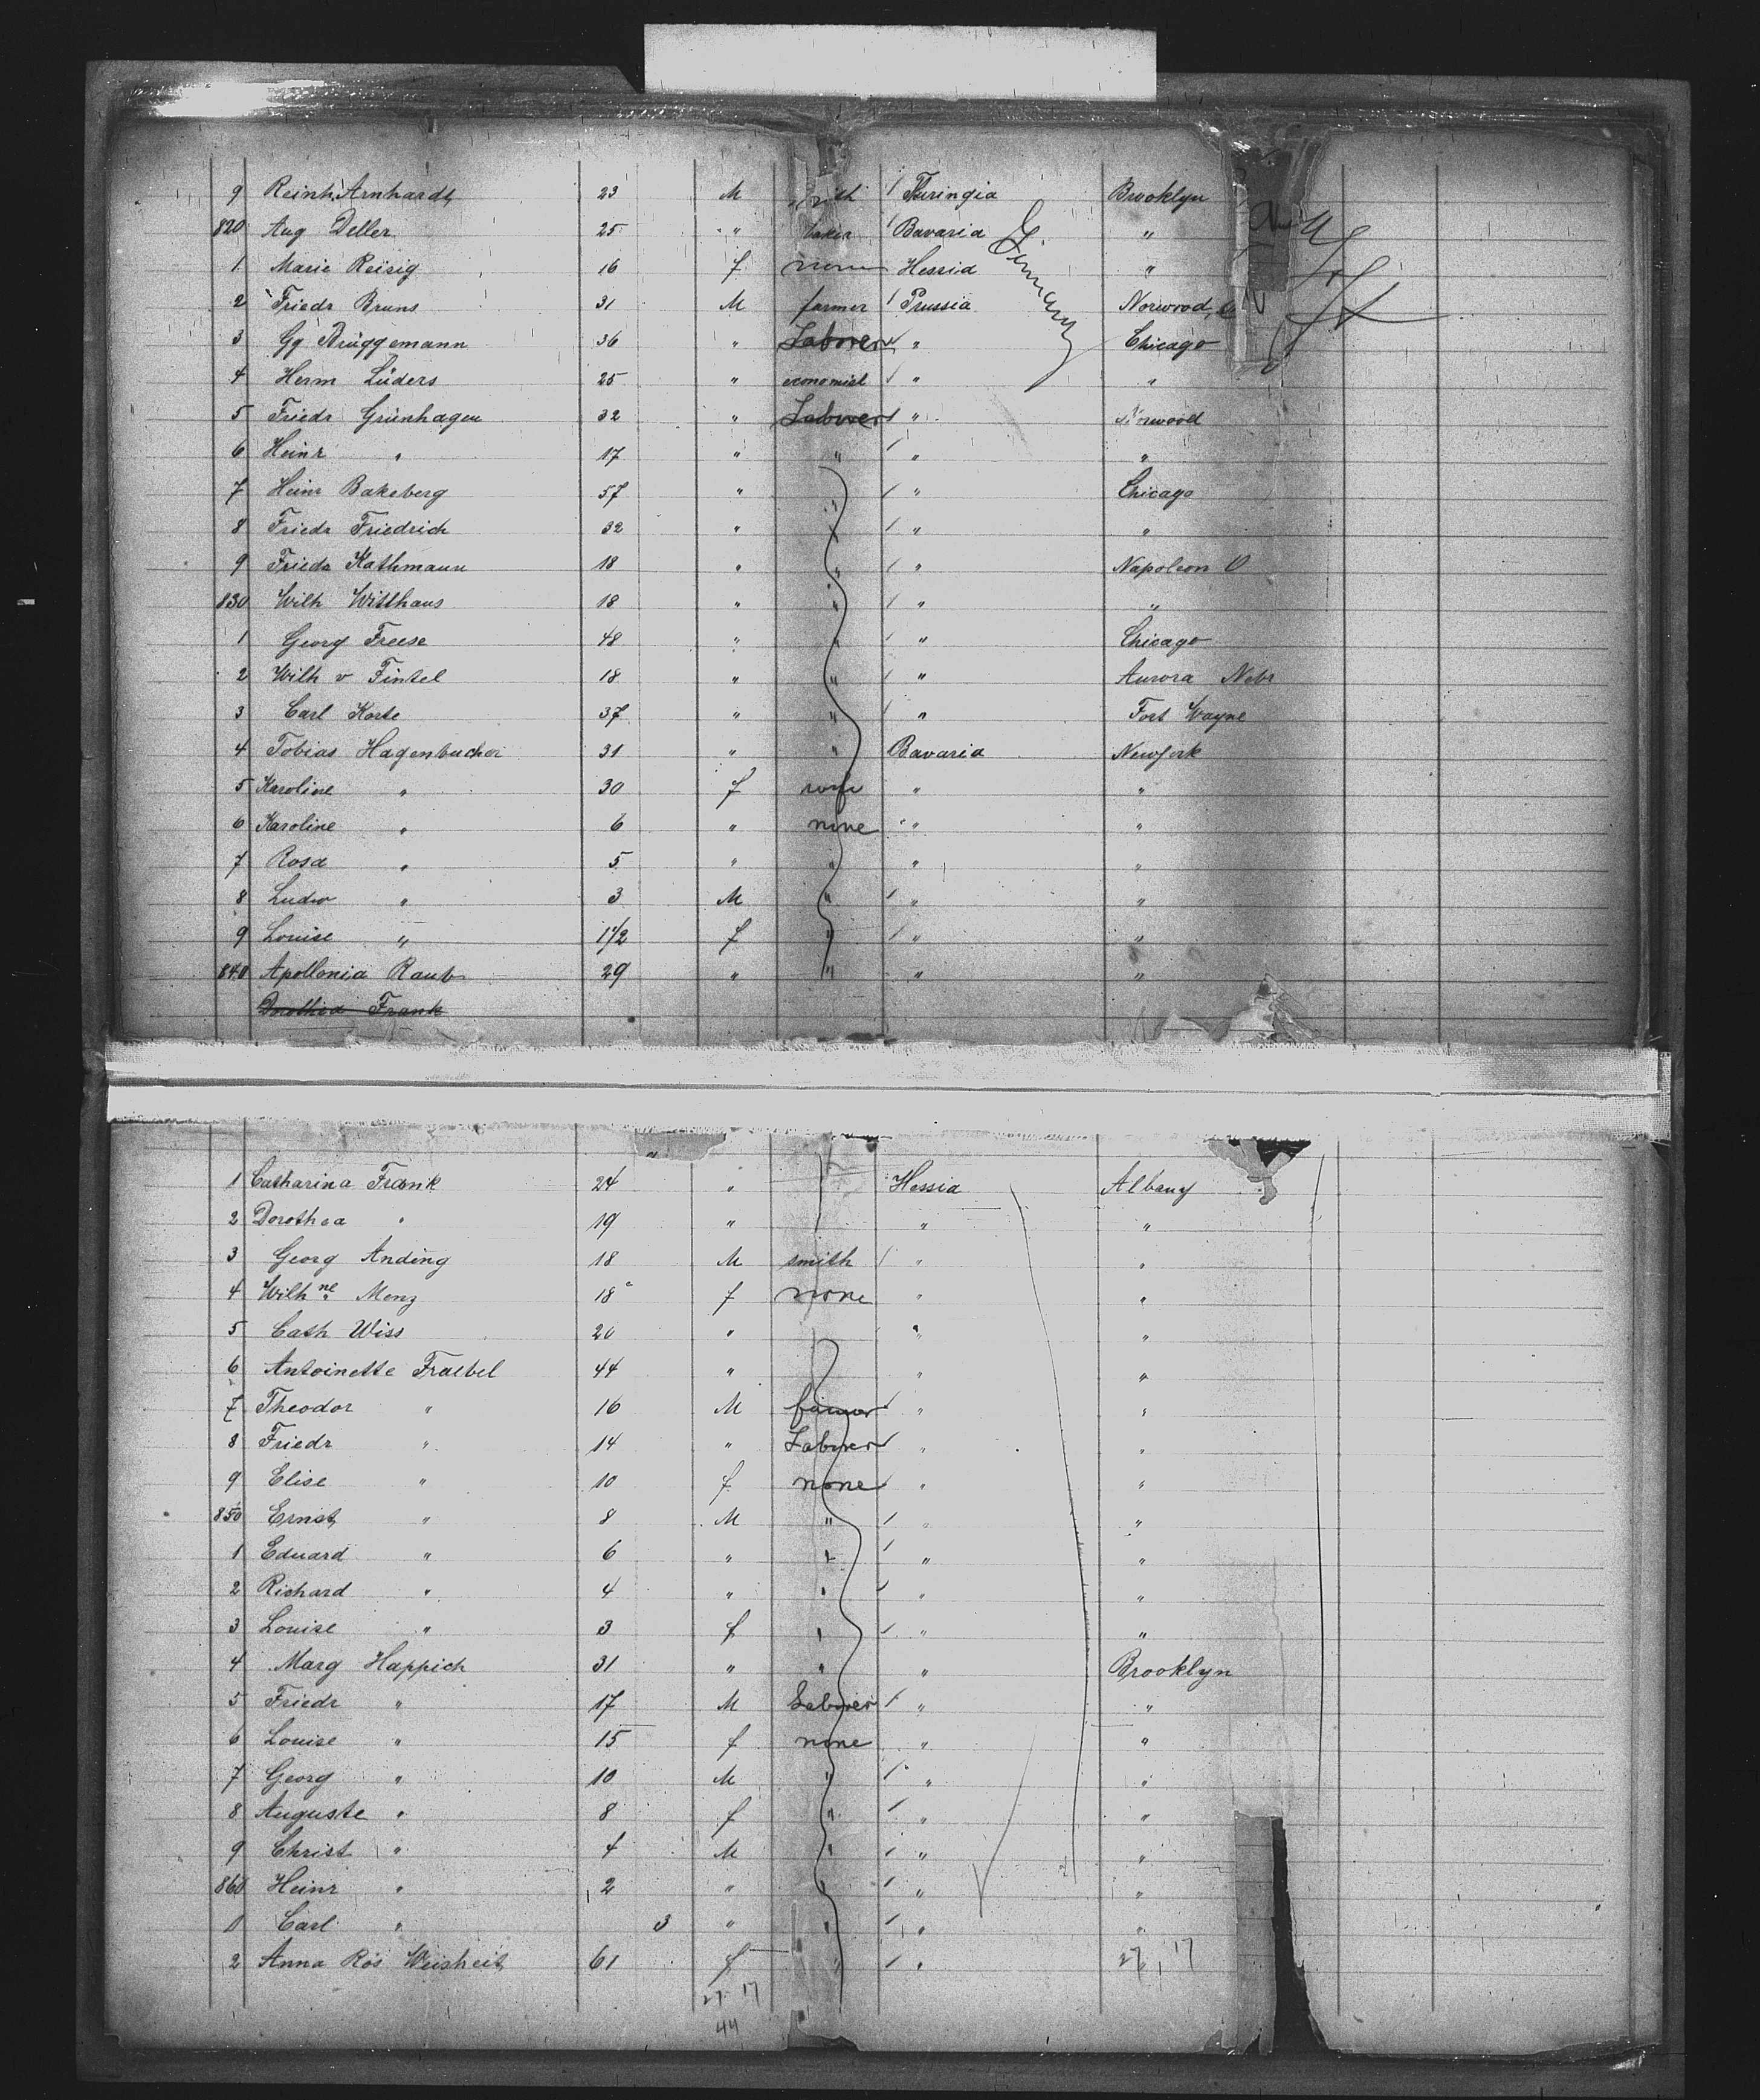 9 Reinh. Arnhardt 23 M Thuringia Brooklyn
820 Aug Deller 25 " baker Bavaria "
1 Marie Reisig 16 f none Hessia "
Germany
2 Friedr Bruns 31 M farmer Prussia Norwood,
3 Gg Brüggemann 36 " Laborer " Chicago
4 Herm Lüders 25 " economist " "
5 Friedr Grünhagen 32 " Laborer " Norwood
6 Heinr " 17 " " " "
7 Heinr Bakeberg 57 " " " Chicago
8 Friedr Friedrich 32 " " " "
9 Friedr Kathmann 18 " " " Napoleon O
830 Wilh Witthaus 18 " " " "
1 Georg Freese 48 " " " Chicago
2 Wilh v Fintel 18 " " " Aurora Nebr
3 Carl Korte 37 " " " Fort Wayne
4 Tobias Hagenbucher 31 " " Bavaria Newyork
5 Karoline " 30 f wife " "
6 Karoline " 6 " none " "
7 Rosa " 5 " " " "
8 Ludw " 3 M " " "
9 Louise " 1 1/2 f " " "
840 Apollonia Raub 29 " " " "
Dorothea Frank
1 Catharina Frank 24 " Hessia Albany
2 Dorothea " 19 " " "
3 Georg Anding 18 M smith " "
4 Wilhne Menz 18 f none " "
5 Cath Wiss 20 " " "
6 Antoinette Fraebel 44 " " "
7 Theodor " 16 M farmer " "
8 Friedr " 14 " Laborer " "
9 Elise " 10 f none " "
850 Ernst " 8 M " " "
1 Eduard " 6 " " " "
2 Richard " 4 " " " "
3 Louise " 3 f " " "
4 Marg Happich 31 " " " Brooklyn
5 Friedr " 17 M Laborer " "
6 Louise " 15 f none " "
7 Georg " 10 M " " "
8 Auguste " 8 f " " "
9 Christ " 4 M " " "
860 Heinr " 2 " " " "
1 Carl " 3 " " " "
2 Anna Ros Weisheit 61 f " " 27 17
27 17
44